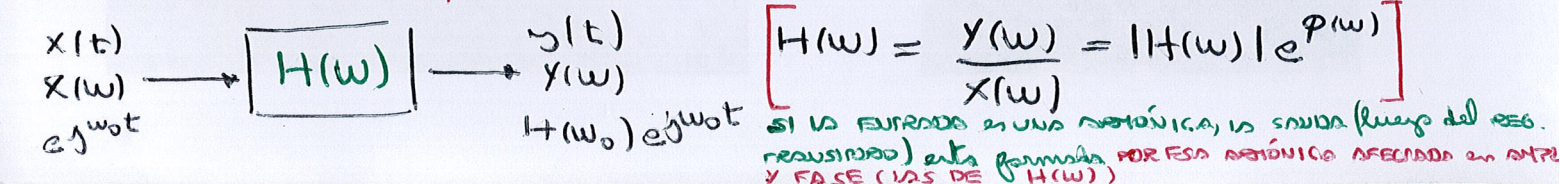 x(t)
X(w)
e^jw₀t
H(w)
y(t)
Y(w)
H(w₀) e^jw₀t
H(w) = Y(w) / X(w) = |H(w)| e^φ(w)
SI LA ENTRADA es UNA ARMÓNICA, LA SALIDA (luego del REG.
TRANSITORIO) esta formada POR ESA ARMÓNICA AFECTADA en AMPL
Y FASE (LAS DE H(w))